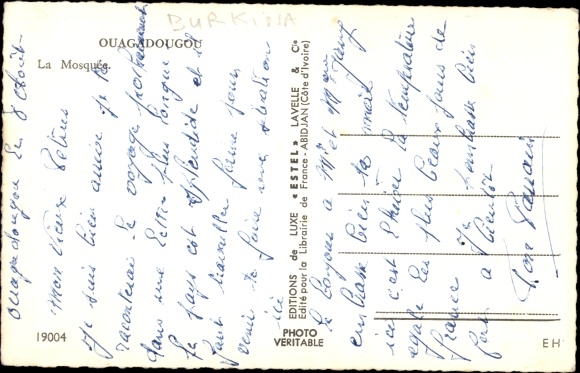 BURKINA
OUAGADOUGOU
La Mosquée.
Ouagadougou le 8 Août
Mon vieux
Je suis bien arrivé Je te
raconterai le voyage
dans une lettre plus longue
Le pays est splendide et il
faut travailler ferme pour
venir te faire une situation
ici
19004
EDITIONS de LUXE « ESTEL » LAVELLE & Cie
Edité pour la Librairie de France - ABIDJAN (Côte d'Ivoire)
PHOTO
VERITABLE
le bonjour à Mr et Mme
embrasse bien ta
ici c'est la température
égale les plus beaux jours de
France Je t'embrasse bien
fort à bientôt
Ton
EH